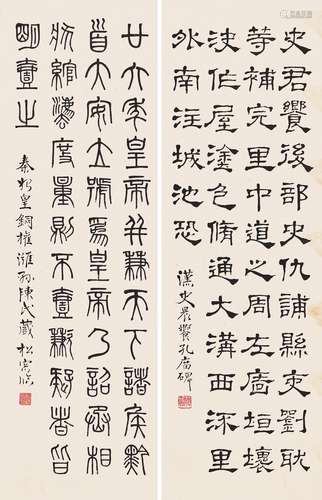 史君饗後部史仇誧縣吏劉耽
等補完里中道之周左廧垣壞
決作屋塗色脩通大溝西流里
外南注城池恐
漢史晨饗孔廟碑
廿六年皇帝并兼天下諸侯黔
首大安立號為皇帝乃詔丞相
狀綰灋度量則不壹歉疑者皆
明壹之
秦始皇銅權濰縣陳氏藏 松窗臨